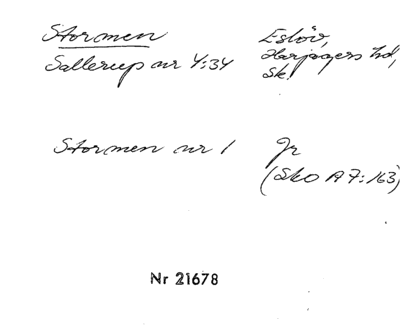 Stormen Eslöv,
Sallerup nr 4:34 Harjagers hd,
Sk.
Stormen nr 1 Jr
(Sko A 7:163)
Nr 21678